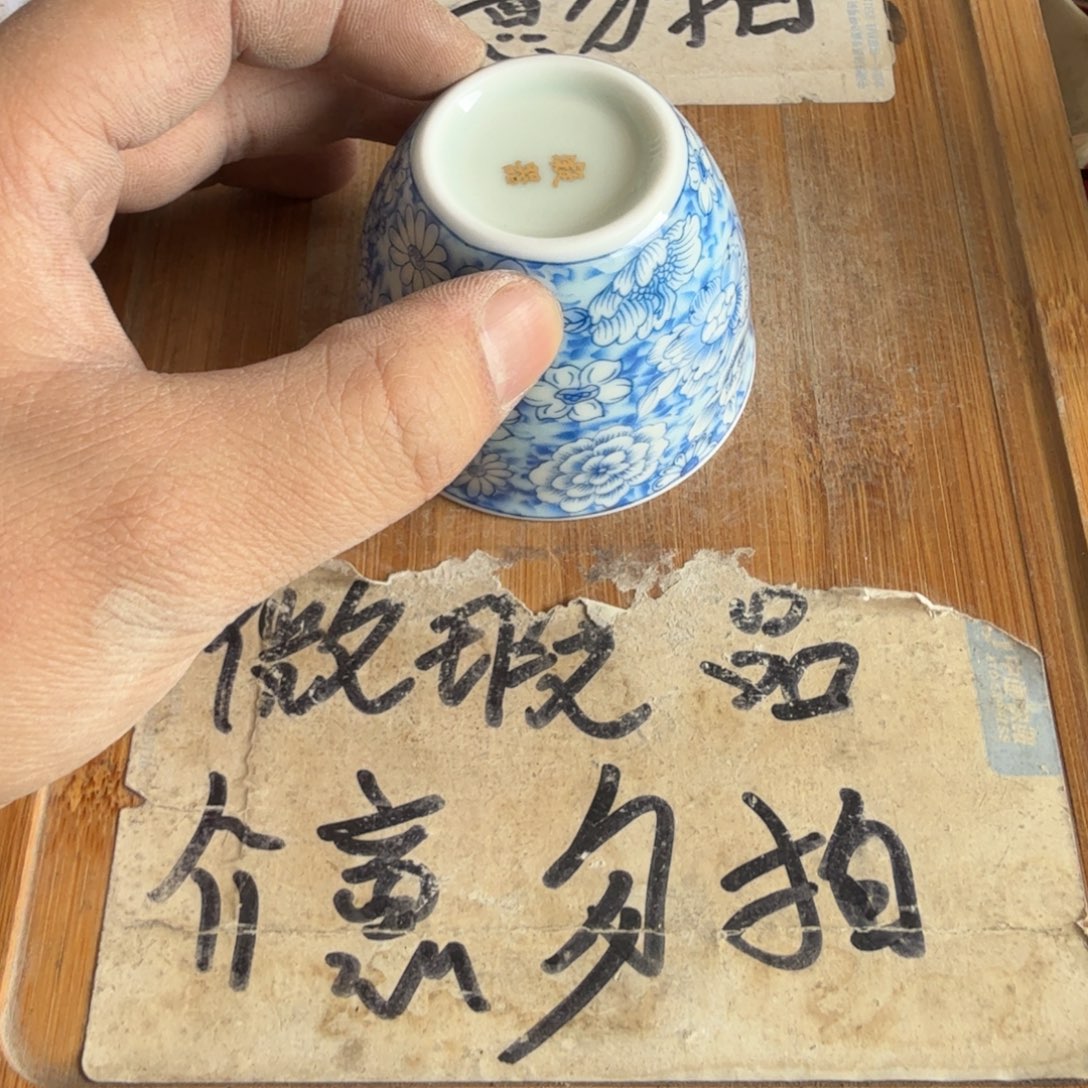 意勿拍
微瑕 品
介意勿拍